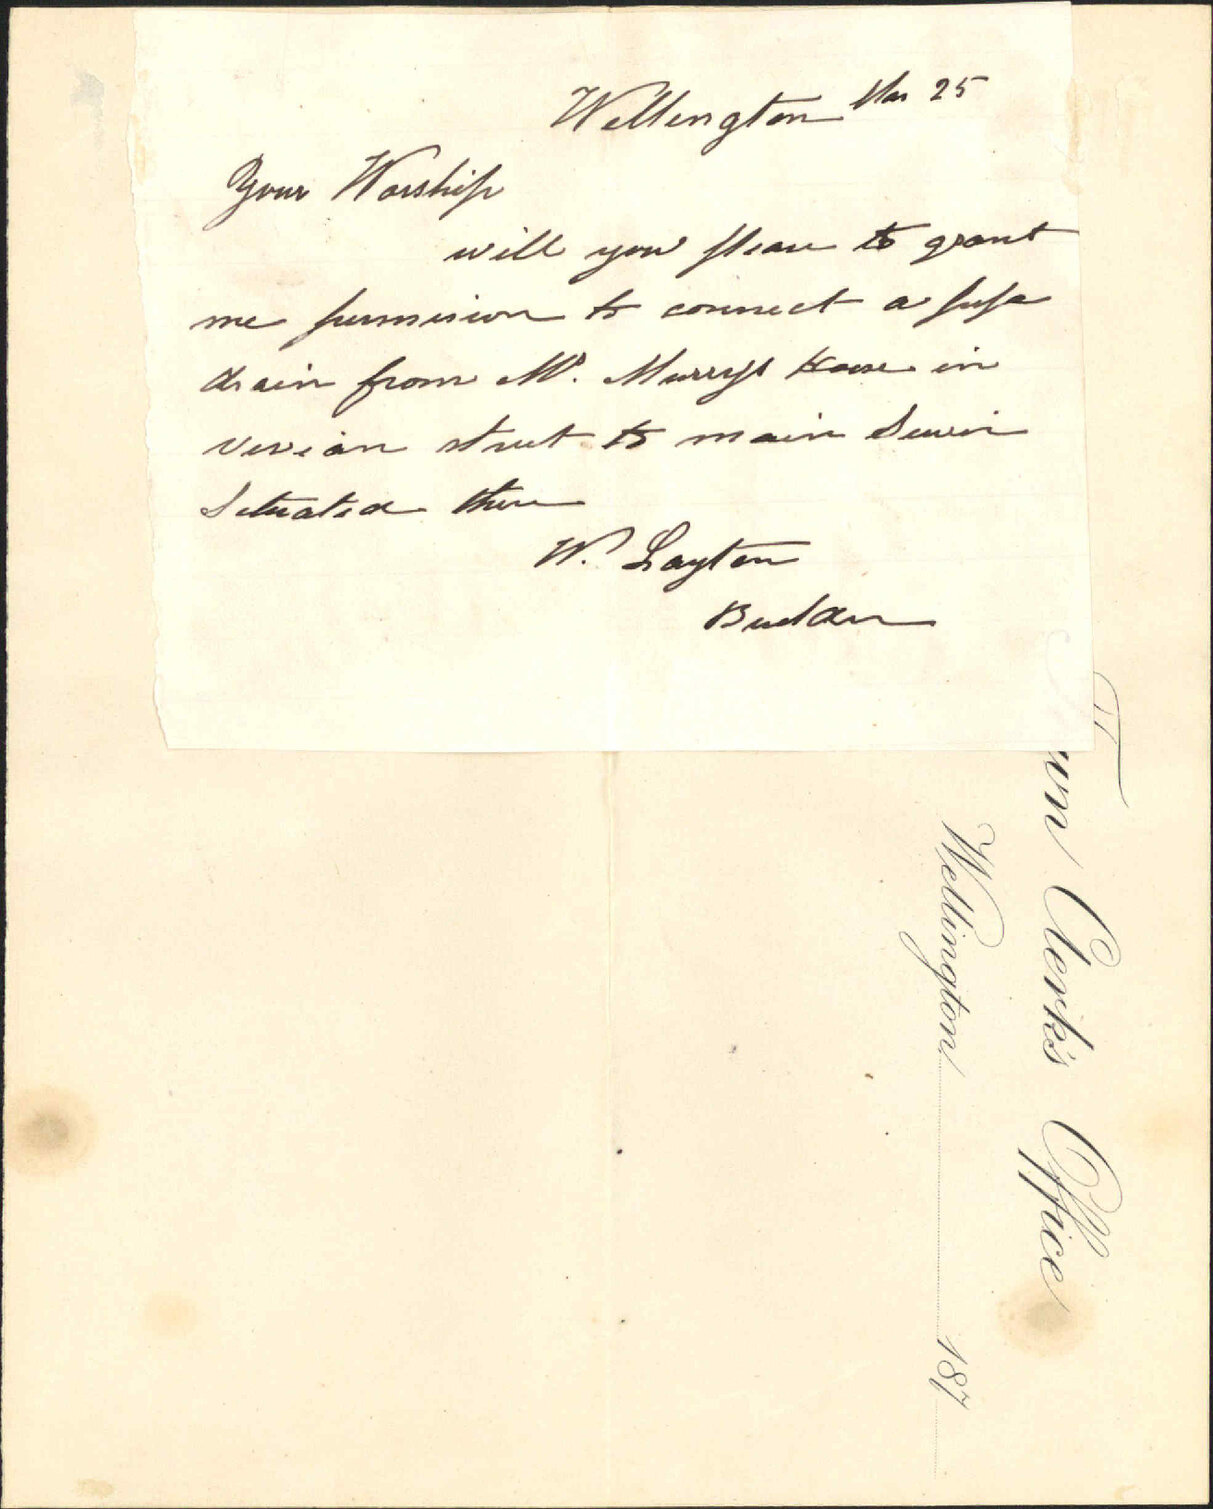 Wellington Mar 25
Your Worship
will you please to grant
me permision to connect a pipe
drain from Mr. Murrys House in
vivian street to main Sewer
Situated there
W. Layton
Buelder
Town Clerk's Office
Wellington 187